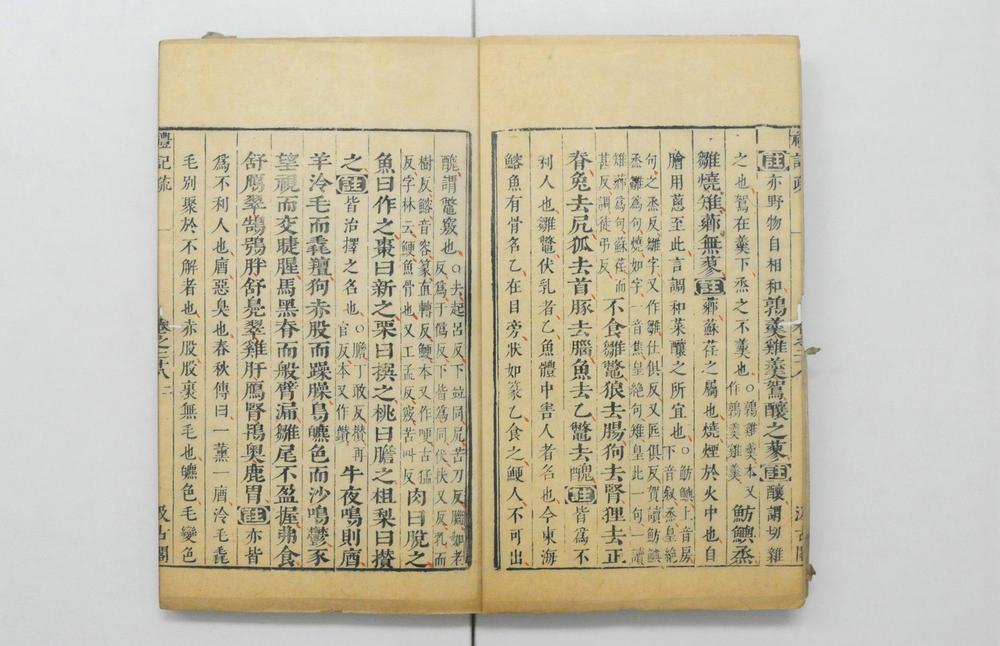 註亦野物自相和鶉羹雞羹鴽釀之蓼註釀謂切雜
之也鴽在羹下烝之不羹也○鶉羹雞羹本又作鶉羹雞羹魴鱮烝
雛燒雉薌無蓼註薌蘇荏之屬也燒煙於火中也自
膾用蔥至此言調和菜釀之所宜也○魴鱮上音房下音叙烝皇絶
句之烝反雛字又作鶵仕俱反又匠俱反賀讀魴鱮烝雛爲句燒如字一音焦皇絶句雉皇此一句一讀
雉薌爲句蘇荏而甚反調徒弔反不食雛鼈狼去腸狗去腎狸去正
脊兔去尻狐去首豚去腦魚去乙鼈去醜註皆爲不
利人也雛鼈伏乳者乙魚體中害人者名也今東海
鰫魚有骨名乙在目旁狀如篆乙食之鯁人不可出
醜謂鼈竅也○去起呂反下並同尻苦刀反腦如老反爲于僞反下皆爲同伏扶又反乳而
樹反鰫音容篆直轉反鯁本又作哽古猛反字林云鯁魚骨也又工孟反竅苦叫反肉曰脫之
魚曰作之棗曰新之栗曰撰之桃曰膽之柤梨曰攢
之註皆治擇之名也○膽丁敢反攢再官反本又作鑽牛夜鳴則庮
羊泠毛而毳羶狗赤股而躁臊鳥皫色而沙鳴鬱豕
望視而交睫腥馬黑脊而般臂漏雛尾不盈握弗食
舒鴈翠鵠鴞胖舒鳧翠雞肝鴈腎鴇奧鹿胃註亦皆
爲不利人也庮惡臭也春秋傳曰一薰一庮泠毛毳
毛別聚於不解者也赤股股裏無毛也皫色毛變色
禮記疏 卷之二八 二 汲古閣